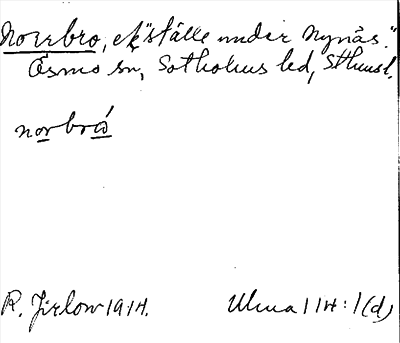 Norrbro, ett "ställe under Nynäs."
Ösmo sn, Sotholms hd, Sthmsl.
norbró
R. Jirlow 1914.
Ulma 114:1 (d)